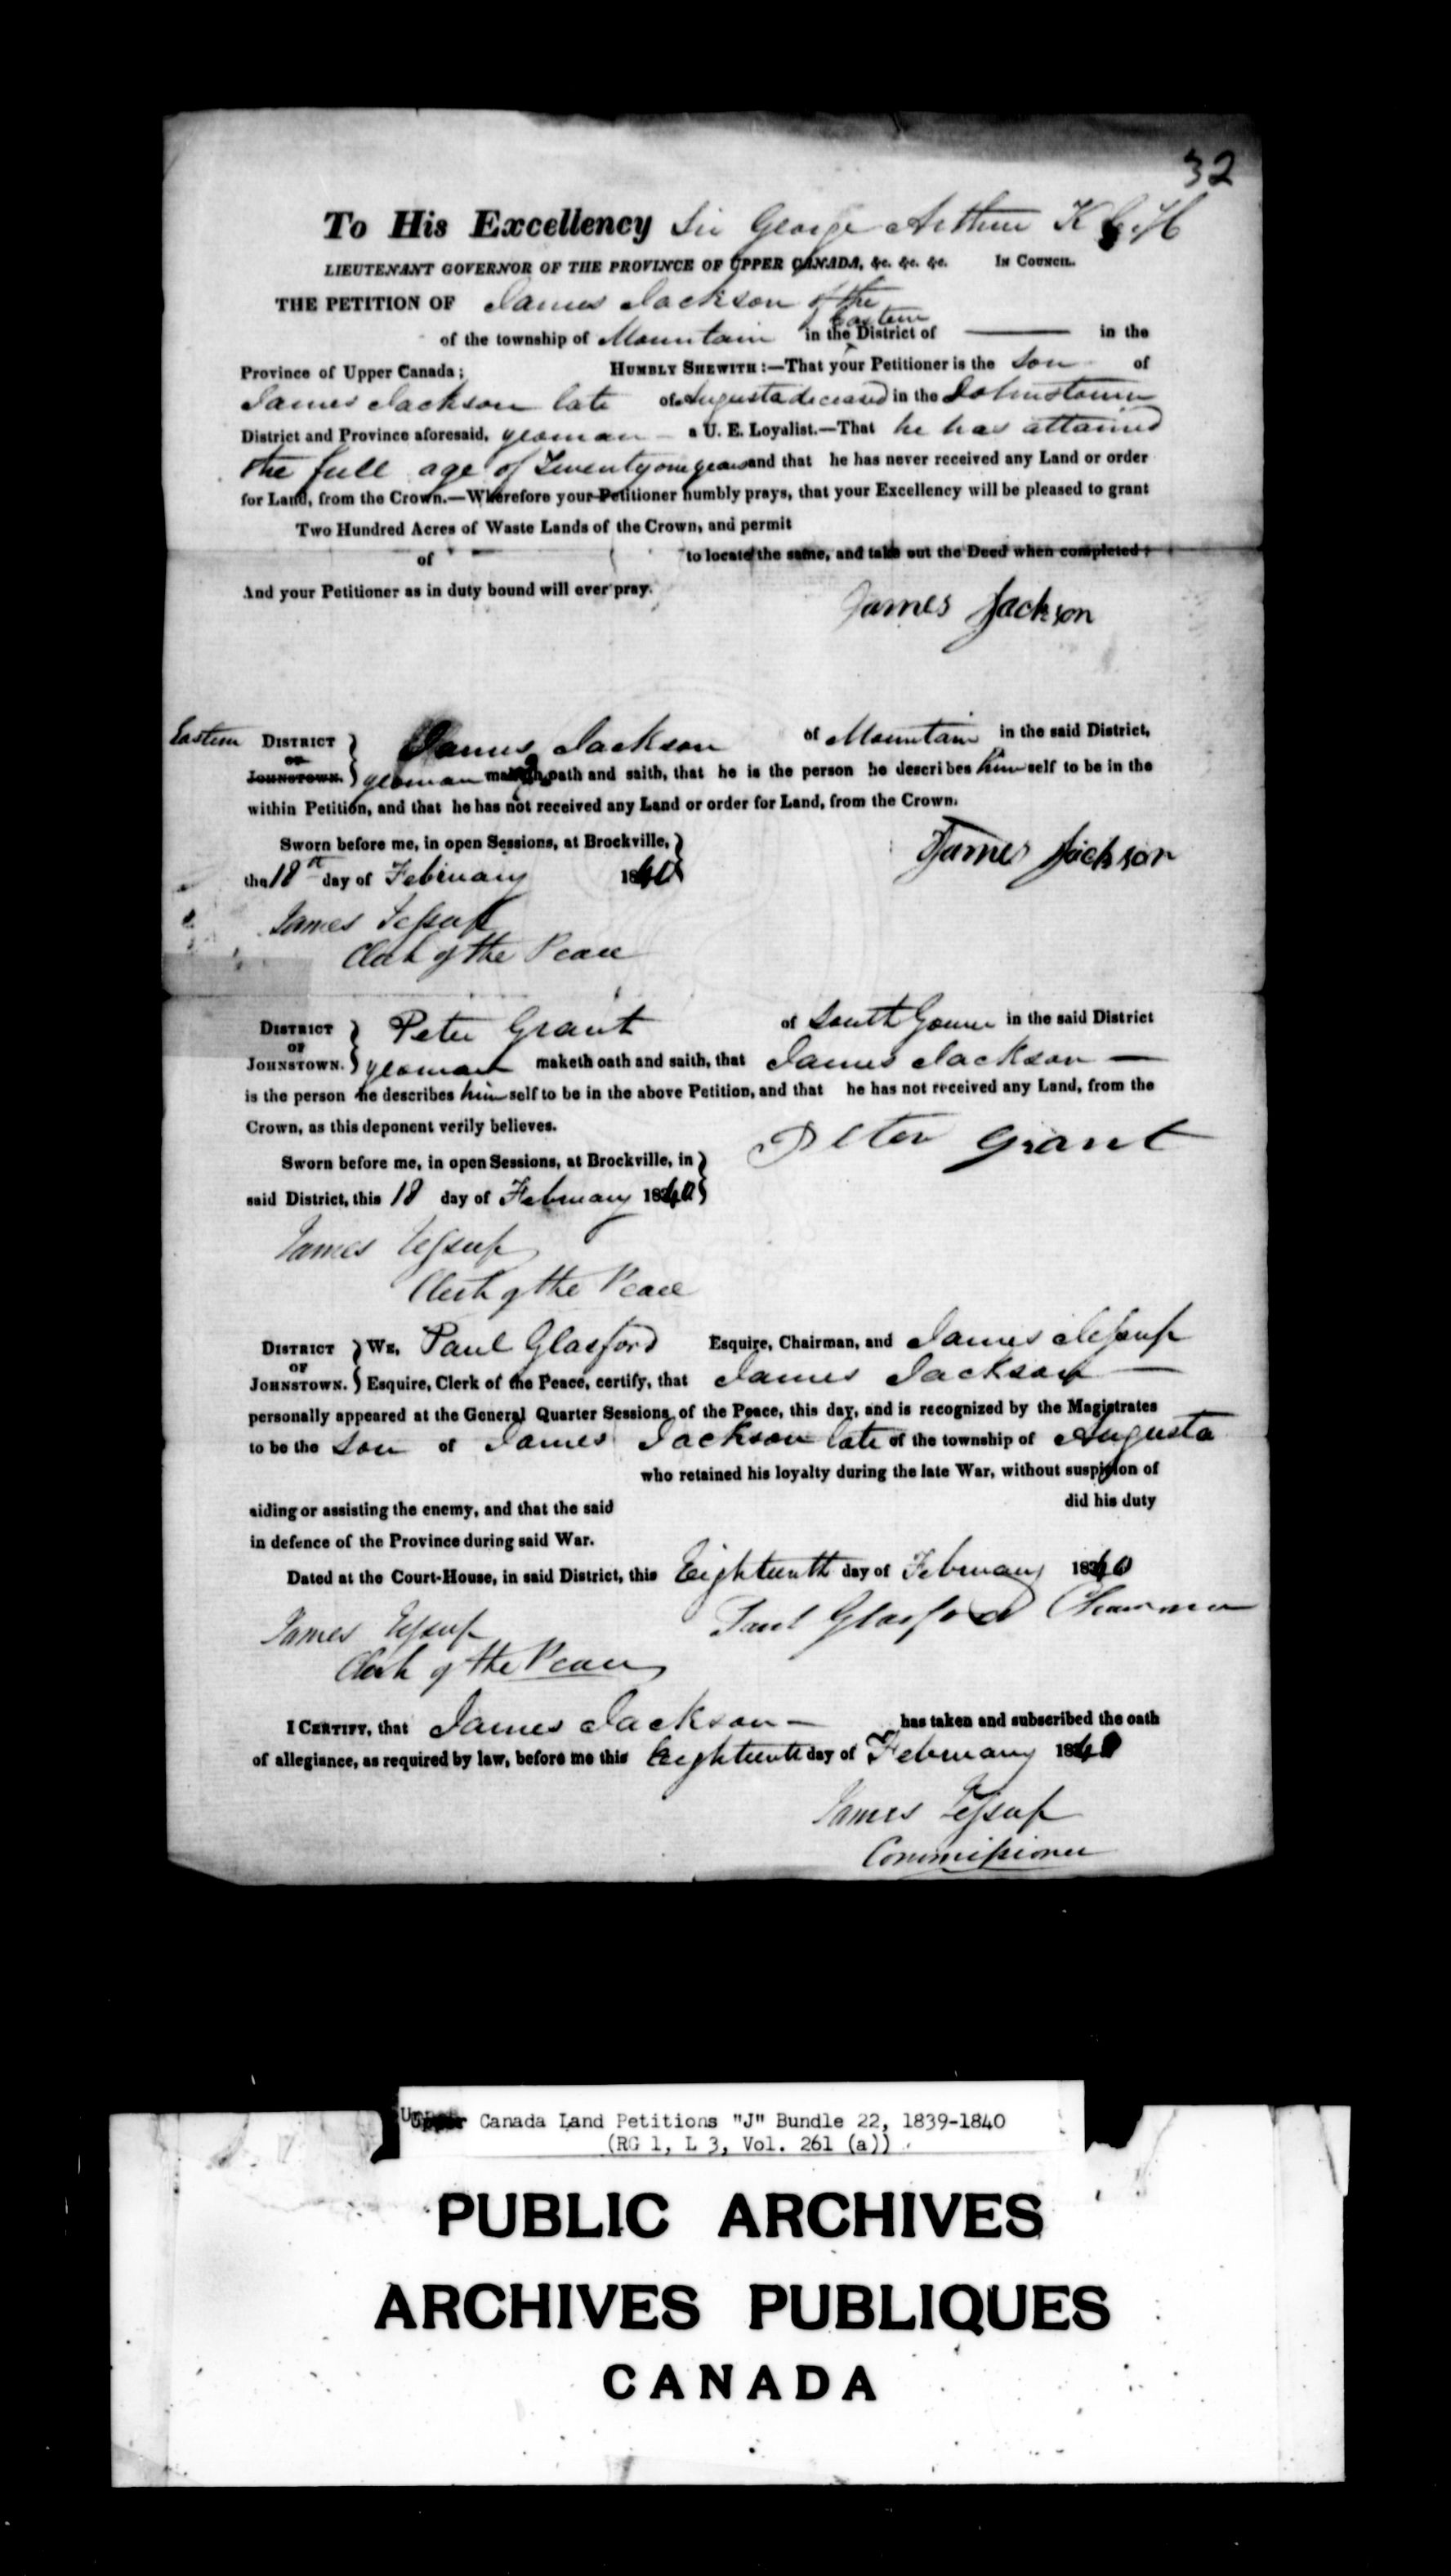 32
To His Excellency Sir George Arthur K C H
LIEUTENANT GOVERNOR OF THE PROVINCE OF UPPER CANADA, &c. &c. &c. IN COUNCIL.
THE PETITION OF James Jackson of the
Eastern
of the township of Mountain in the District of ——— in the
Province of Upper Canada; HUMBLY SHEWITH:—That your Petitioner is the Son of
James Jackson late of Augusta deceased in the Johnstown
District and Province aforesaid, yeoman — a U. E. Loyalist.—That he has attained
the full age of Twenty one years and that he has never received any Land or order
for Land, from the Crown.—Wherefore your Petitioner humbly prays, that your Excellency will be pleased to grant
Two Hundred Acres of Waste Lands of the Crown, and permit
of to locate the same, and take out the Deed when completed:
And your Petitioner as in duty bound will ever pray.
James Jackson
Eastern DISTRICT } James Jackson of Mountain in the said District,
OF
JOHNSTOWN. } yeoman maketh oath and saith, that he is the person he describes himself to be in the
within Petition, and that he has not received any Land or order for Land, from the Crown.
Sworn before me, in open Sessions, at Brockville, }
the 18th day of February 1840 }
James Jackson
James Jessup
Clerk of the Peace
DISTRICT } Peter Grant of South Gower in the said District
OF
JOHNSTOWN. } yeoman maketh oath and saith, that James Jackson —
is the person he describes himself to be in the above Petition, and that he has not received any Land, from the
Crown, as this deponent verily believes.
Peter Grant
Sworn before me, in open Sessions, at Brockville, in }
said District, this 18 day of February 1840 }
James Jessup
Clerk of the Peace
DISTRICT } WE, Paul Glasford Esquire, Chairman, and James Jessup
OF
JOHNSTOWN. } Esquire, Clerk of the Peace, certify, that James Jackson —
personally appeared at the General Quarter Sessions of the Peace, this day, and is recognized by the Magistrates
to be the Son of James Jackson late of the township of Augusta
who retained his loyalty during the late War, without suspicion of
aiding or assisting the enemy, and that the said did his duty
in defence of the Province during said War.
Dated at the Court-House, in said District, this Eighteenth day of February 1840
Paul Glasford Chairman
James Jessup
Clerk of the Peace
I CERTIFY, that James Jackson — has taken and subscribed the oath
of allegiance, as required by law, before me this Eighteenth day of February 1840
James Jessup
Commissioner
Upper Canada Land Petitions "J" Bundle 22, 1839-1840
(RG 1, L 3, Vol. 261 (a))
PUBLIC ARCHIVES
ARCHIVES PUBLIQUES
CANADA